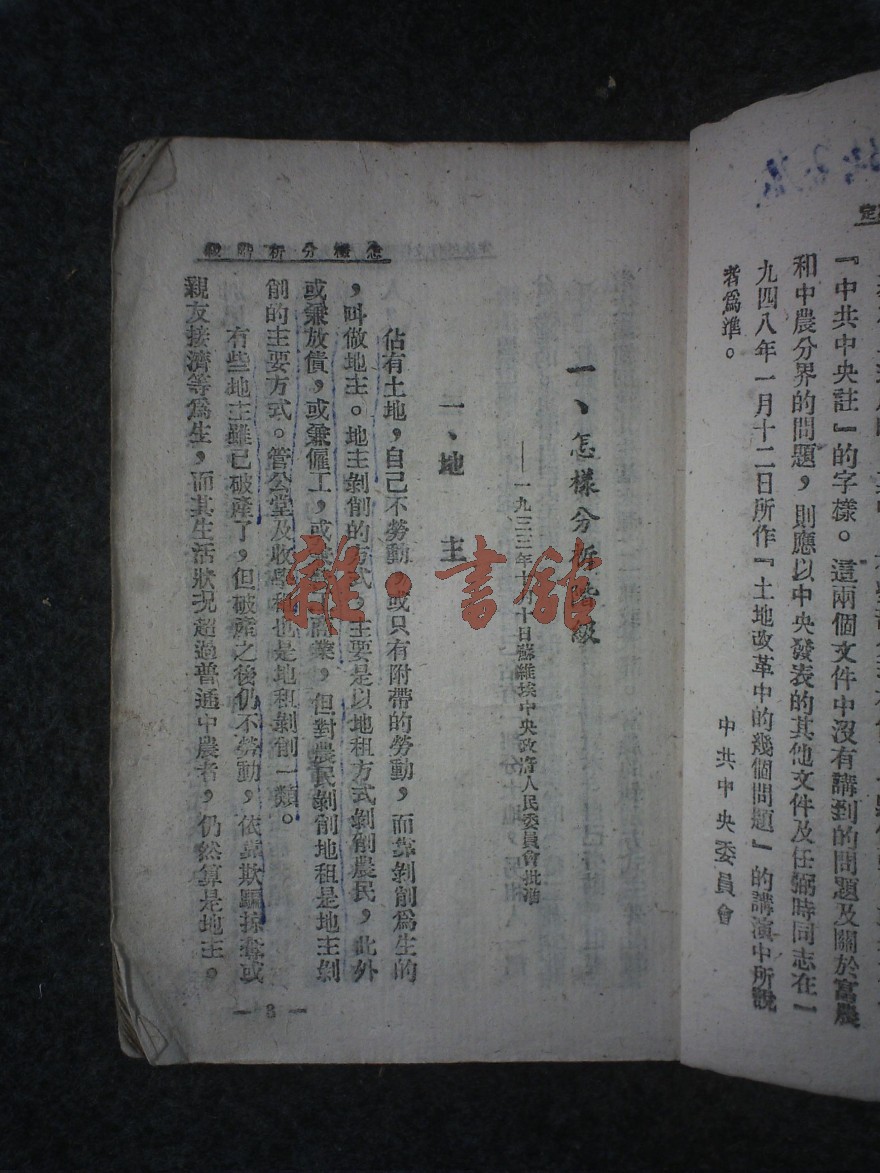 『中共中央註』的字樣。這兩個文件中沒有講到的問題及關於富農
和中農分界的問題，則應以中央發表的其他文件及任弼時同志在一
九四八年一月十二日所作『土地改革中的幾個問題』的講演中所說
者爲準。
中共中央委員會
一、怎樣分析階級
——一九三三年十月十日蘇維埃中央政府人民委員會批准
一、地主
佔有土地，自己不勞動，或只有附帶的勞動，而靠剝削爲生的
，叫做地主。地主剝削的方式，主要是以地租方式剝削農民，此外
或兼放債，或兼僱工，或兼商業，但對農民剝削地租是地主剝
削的主要方式。管公堂及收學租也是地租剝削一類。
有些地主雖已破產了，但破產之後仍不勞動，依靠欺騙掠奪或
親友接濟等爲生，而其生活狀況超過普通中農者，仍然算是地主。
怎樣分析階級
— 3 —
雜·書館